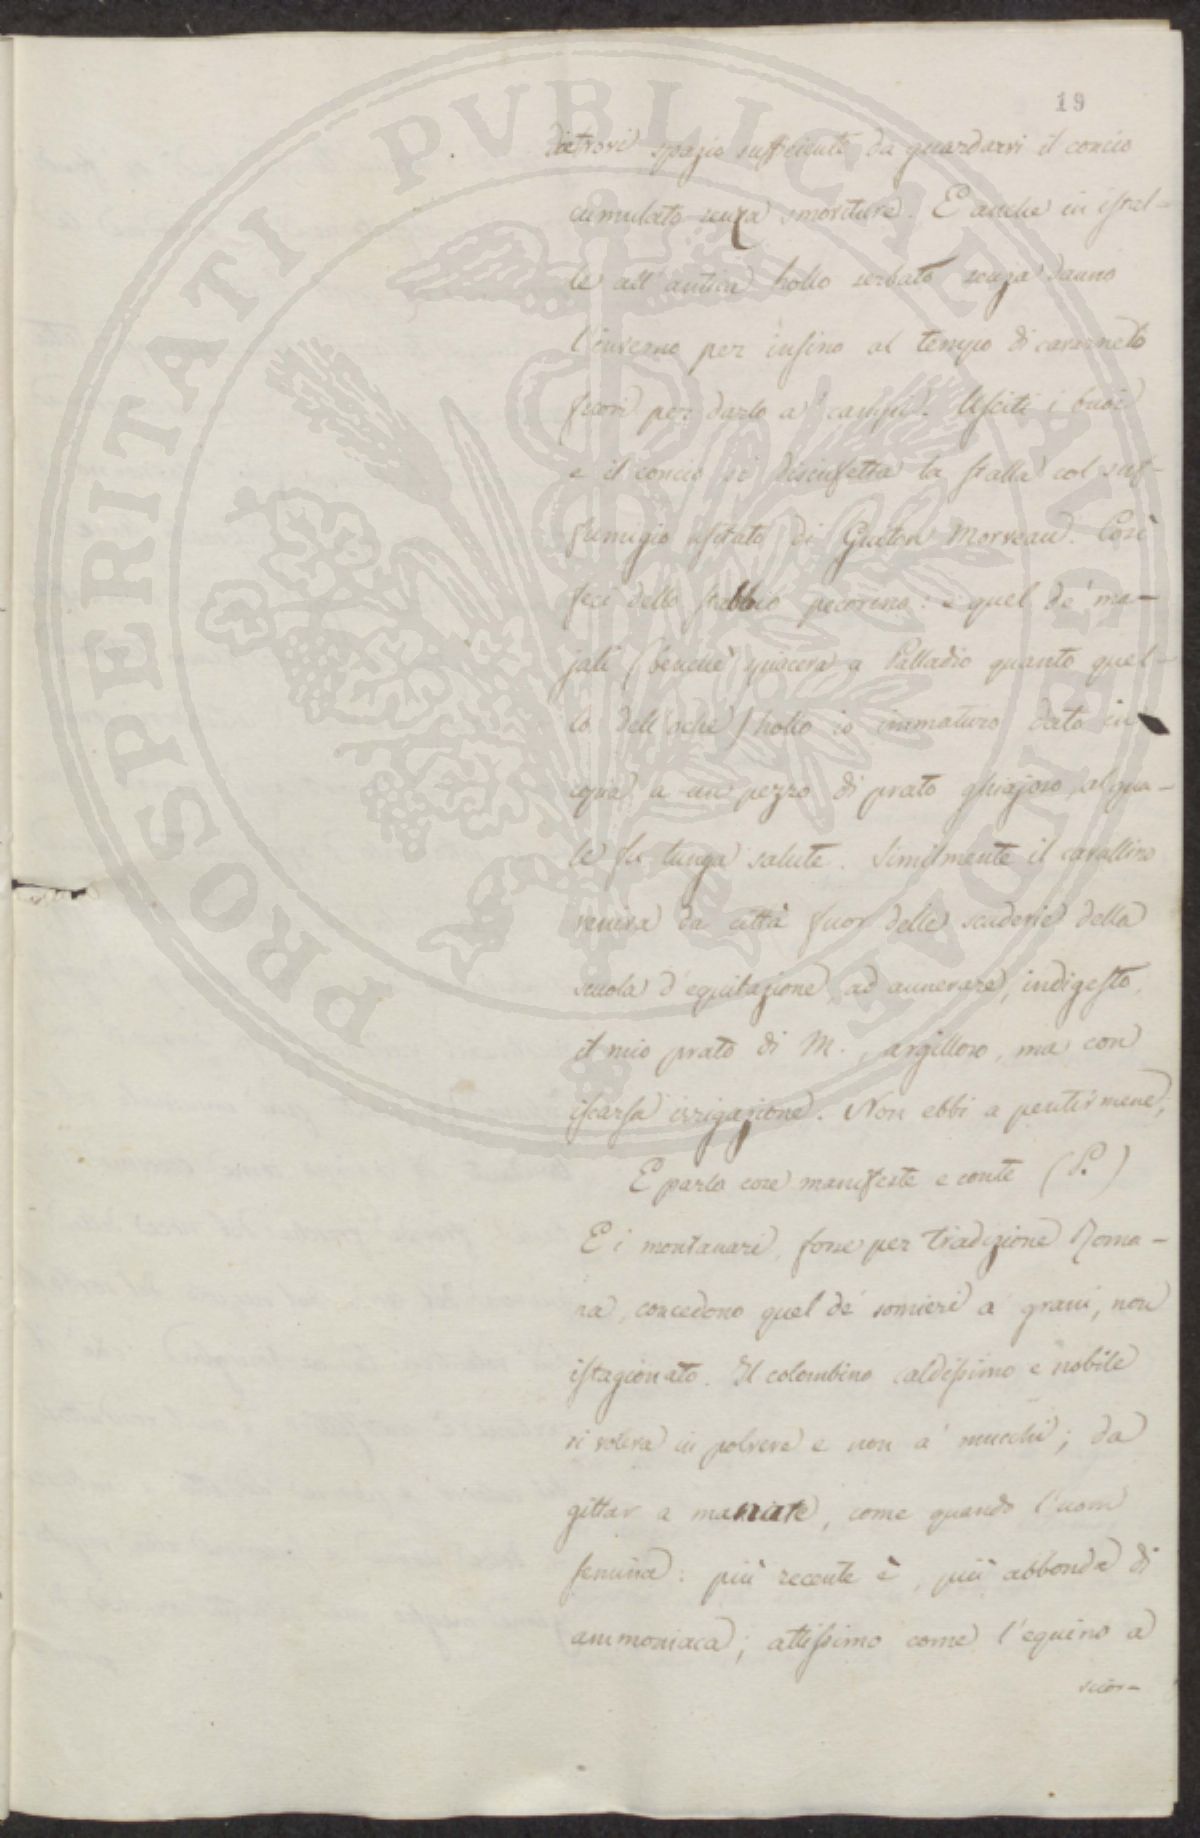 19
PROSPERITATI PUBLICAE AUGENDAE
dietrovi spazio sufficiente da guardarvi il concio
cumulato senza smoviture. E anche in istal-
le all'antica hollo serbato senza danno
l'inverno per insino al tempo di cavarnelo
fuori per darlo a' campi. Usciti i buoi
e il concio si disinfetta la stalla col suf-
fumigio usitato di Guiton Morveau. Così
feci dello stabbio pecorino: e quel de' ma-
jali (benchè spiaceva a Palladio quanto quel-
lo dell'oche) hollo io immaturo dato in
copia a un pezzo di prato ghiajoso, al qua-
le fu lunga salute. Similmente il cavallino
veniva da città fuor delle scuderie della
scuola d'equitazione, ad annerare, indigesto,
il mio prato di M., argilloso, ma con
iscarsa irrigazione. Non ebbi a pentirmene;
E parlo cose manifeste e conte (P.)
E i montanari, forse per tradizione Roma-
na, concedono quel de' somieri a' grani, non
istagionato. Il colombino caldissimo e nobile
si voleva in polvere e non a' mucchi; da
gittar a maniate, come quando l'uom
semina: più recente è, più abbonda di
ammoniaca; attissimo come l'equino a
scor-